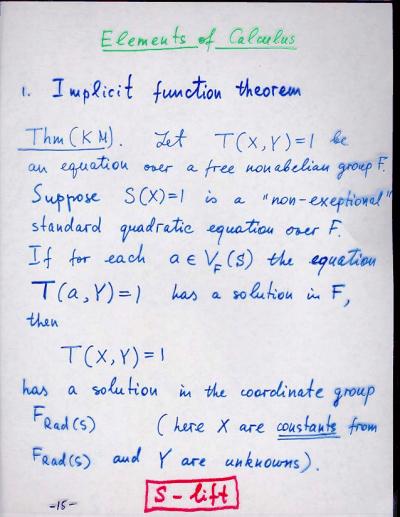 Elements of Calculus
1. Implicit function theorem
Thm (KM). Let T(X,Y)=1 be
an equation over a free nonabelian group F.
Suppose S(X)=1 is a "non-exeptional"
standard quadratic equation over F.
If for each a ∈ V_F(S) the equation
T(a,Y)=1 has a solution in F,
then
T(X,Y)=1
has a solution in the coordinate group
F_Rad(S) (here X are constants from
F_Rad(S) and Y are unknowns).
S-lift
-15-